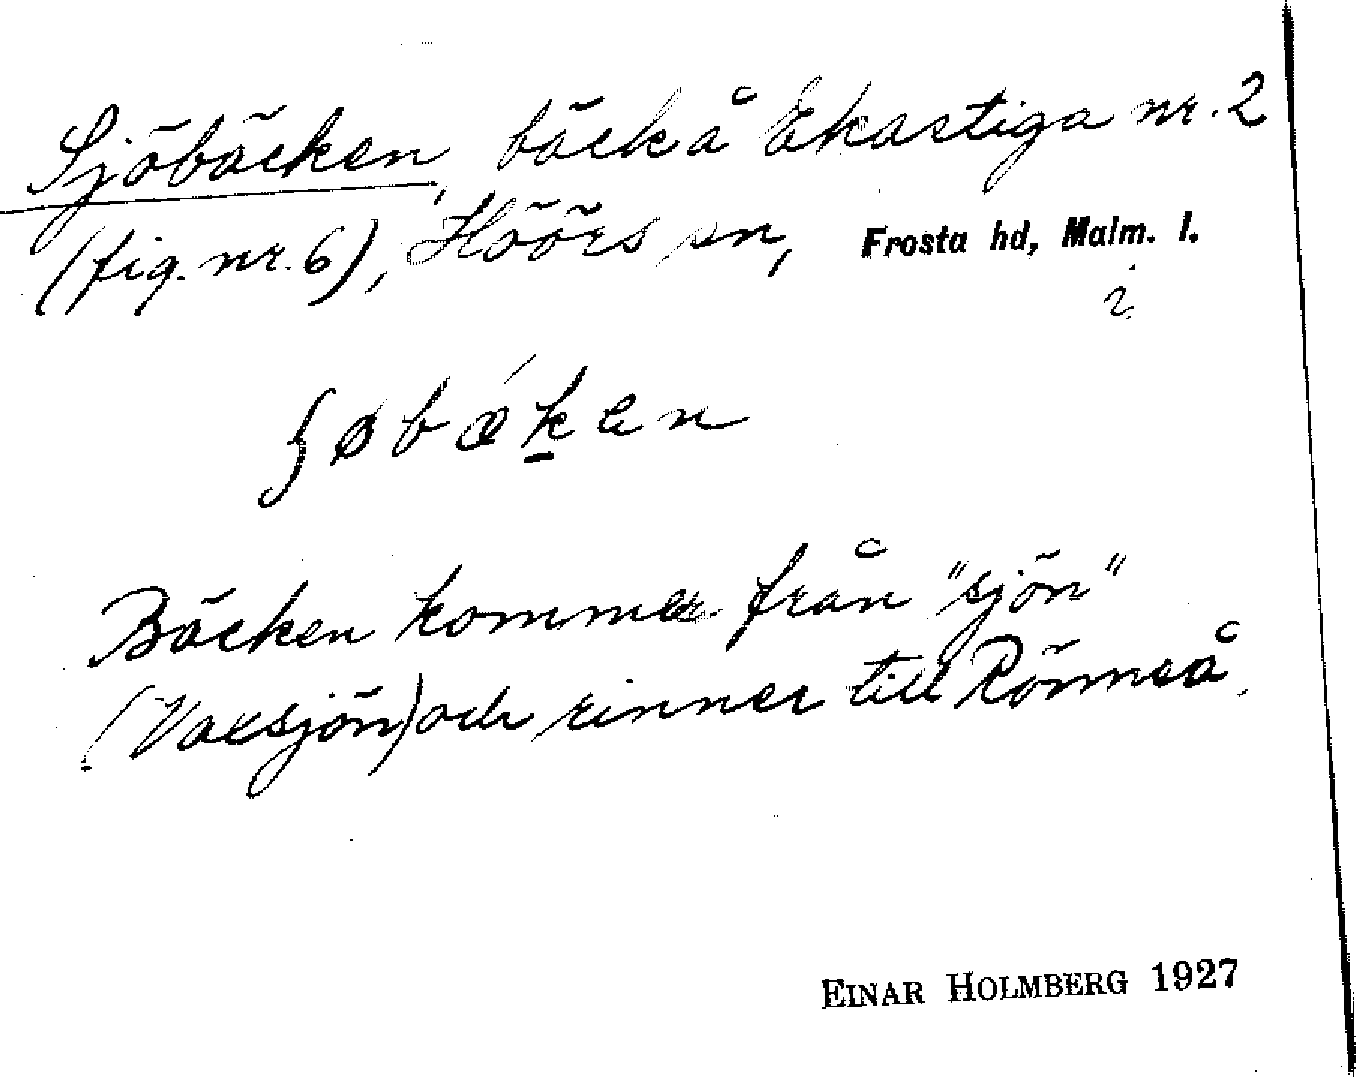 Sjöbäcken, bäck å Ekastiga nr. 2
(fig. nr. 6), Höörs sn, Frosta hd, Malm. l.
i
ʃøbǽk̠en
Bäcken kommer från "sjön"
(Vaksjön) och rinner till Rönneå.
EINAR HOLMBERG 1927